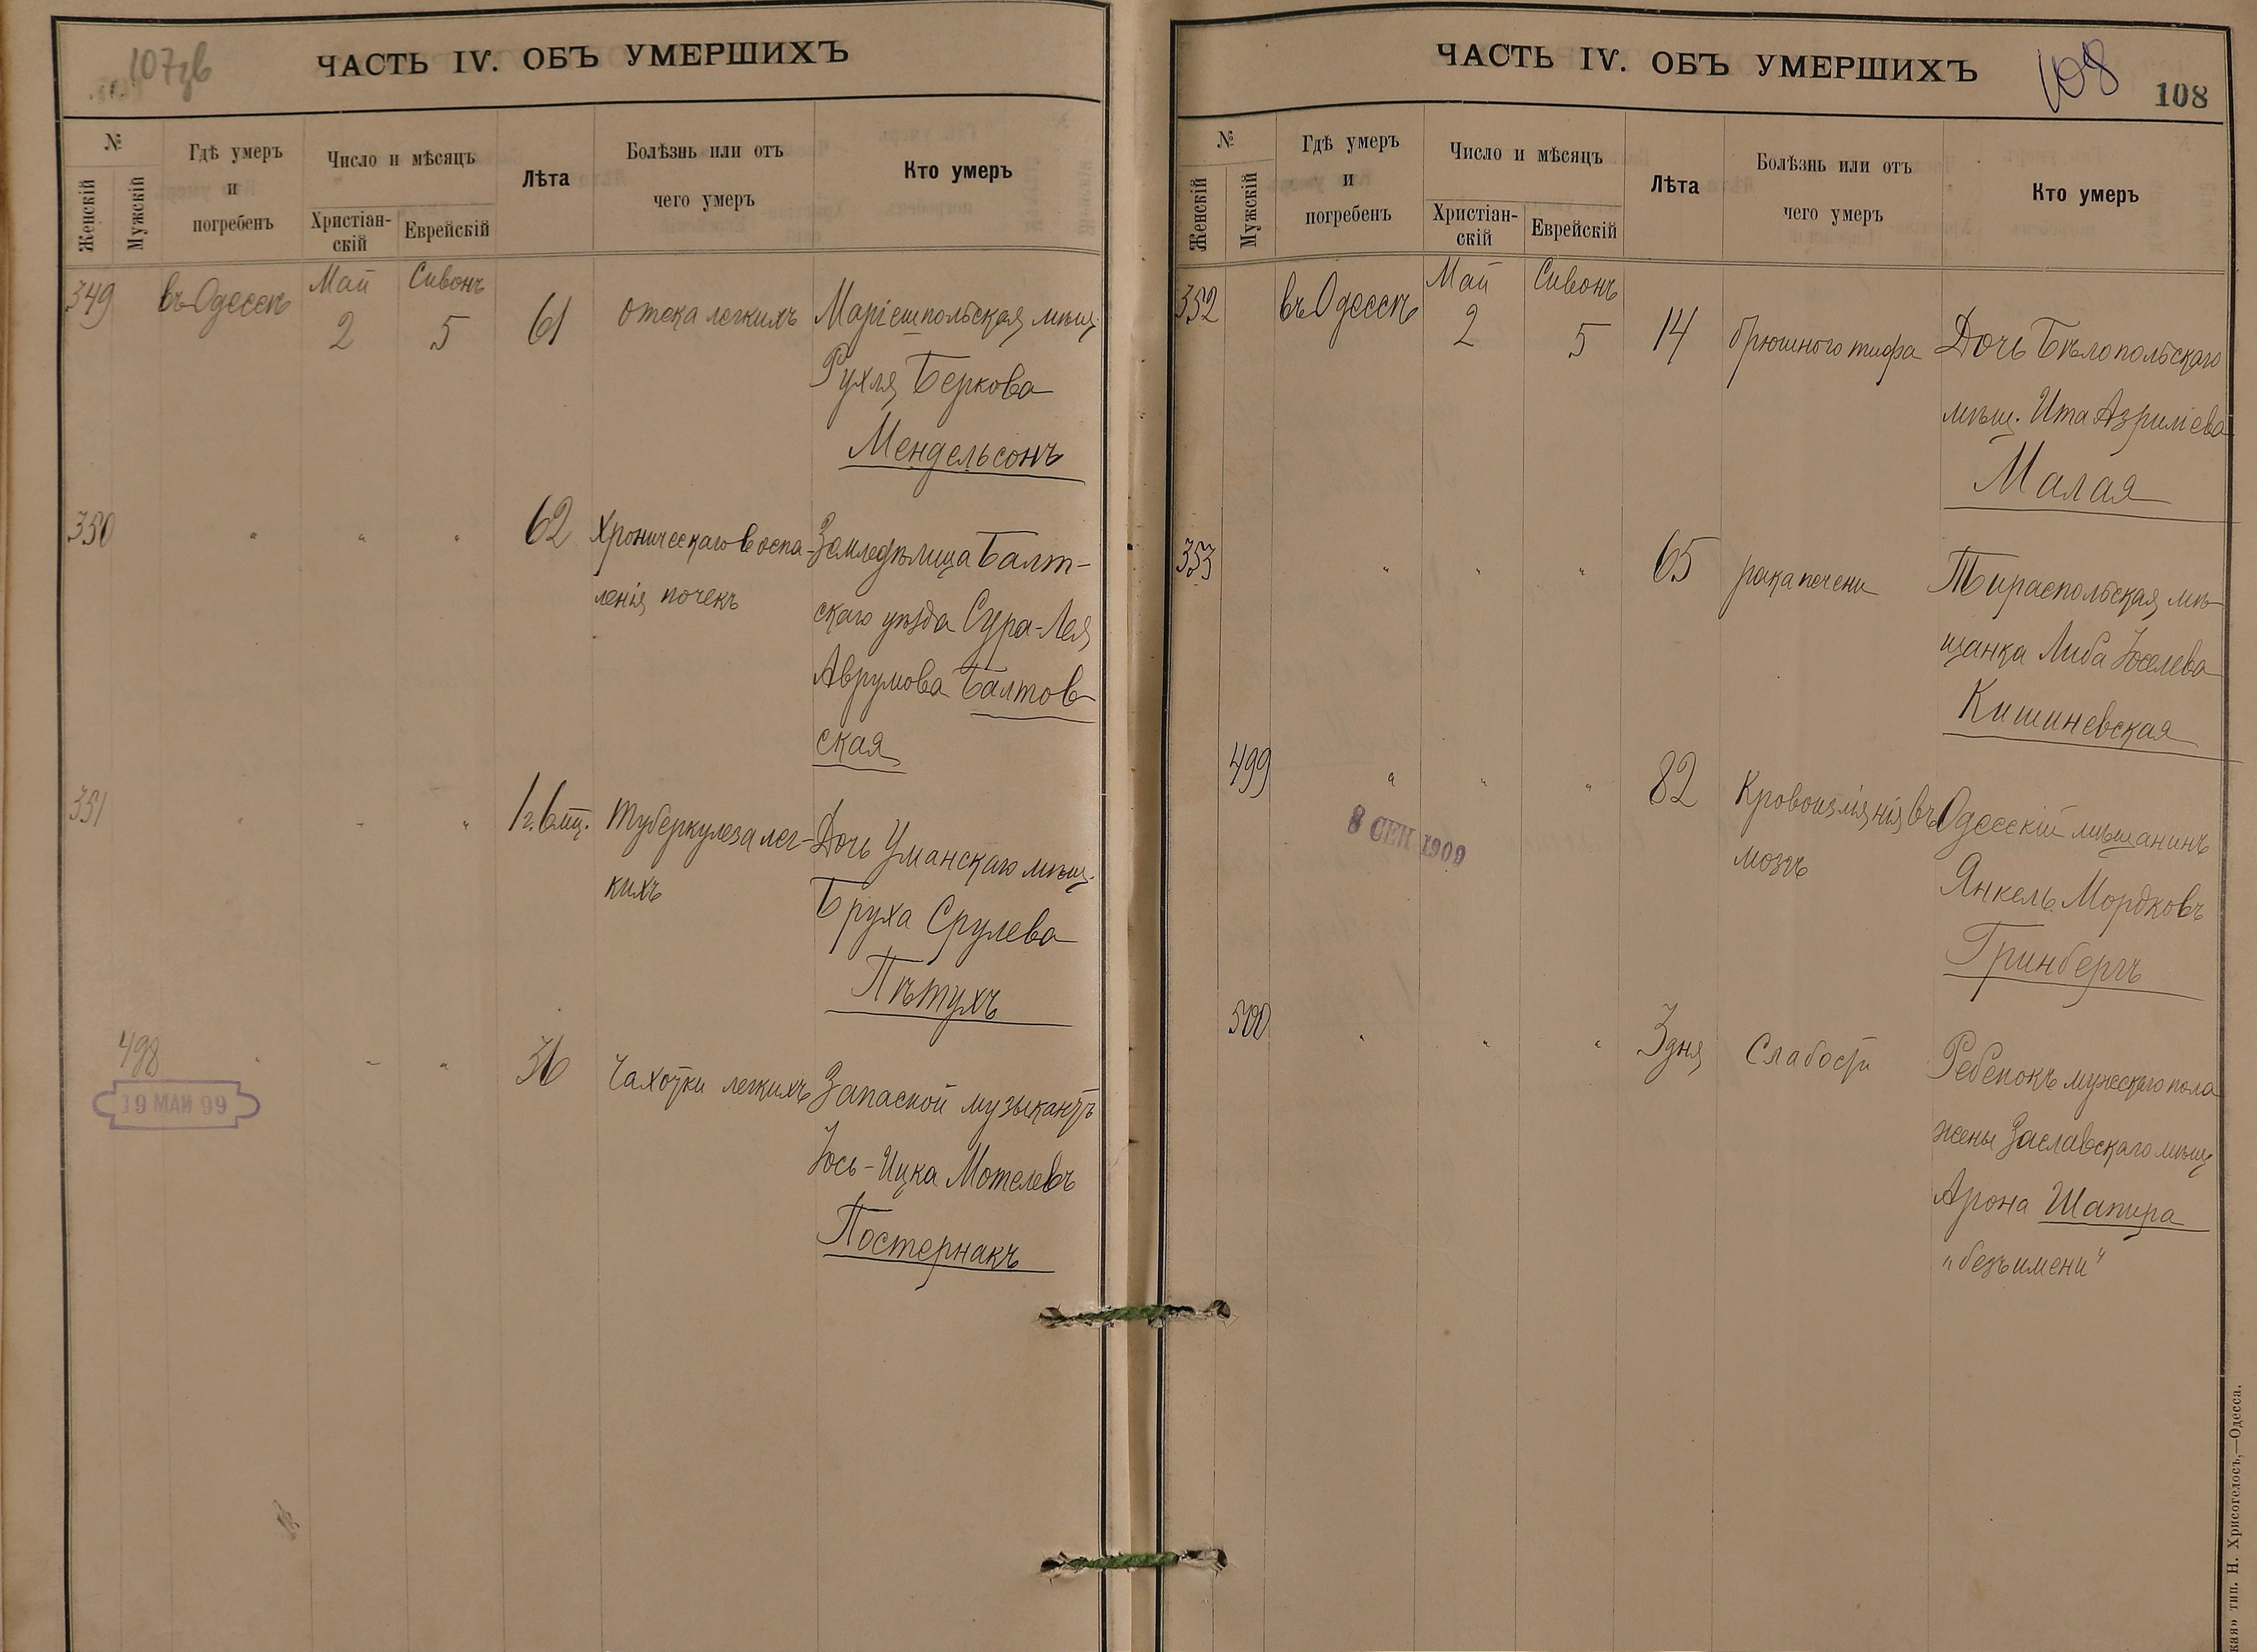 107зв
ЧАСТЬ IV. ОБЪ УМЕРШИХЪ
№
Женскій
Мужскій
Гдѣ умеръ
и
погребенъ
Число и мѣсяцъ
Христіан-
скій
Еврейскій
Лѣта
Болѣзнь или отъ
чего умеръ
Кто умеръ
349 въ Одессѣ Май 2 Сивонъ 5 61 отека легкихъ Маріешпольская мѣщ.
Рухля Беркова
Мендельсонъ
350 " " " 62 Хроническаго воспа- Земледѣлица Балт-
ленія почекъ скаго уѣзда Сура-Лея
Аврумова Балтов
ская
351 " " " 1 г. 6 мц. Туберкулеза лег- Дочь Уманскаго мѣщ.
кихъ Бруха Срулева
Пѣтухъ
498 " " " 36 Чахотки легкихъ Запасной музыкантъ
19 МАИ 99
Іось-Ицка Мотелевъ
Постернакъ
ЧАСТЬ IV. ОБЪ УМЕРШИХЪ
108
108
№
Женскій
Мужскій
Гдѣ умеръ
и
погребенъ
Число и мѣсяцъ
Христіан-
скій
Еврейскій
Лѣта
Болѣзнь или отъ
чего умеръ
Кто умеръ
352 въ Одессѣ Май 2 Сивонъ 5 14 брюшного тифа Дочь Бѣлопольскаго
мѣщ. Ита Азриліева
Малая
353 " " " 65 рака печени Тираспольская мѣ-
щанка Либа Іоселева
Кишиневская
499 " " " 82 Кровоизліянія въ Одесскій мѣщанинъ
8 СЕН 1909
мозгъ Янкель Мордковъ
Гринбергъ
500 " " " 3 дня Слабости Ребенокъ мужескаго пола
жены Заславскаго мѣщ
Арона Шапира
„безъ имени"
тип. Н. Хрисогелосъ,—Одесса.